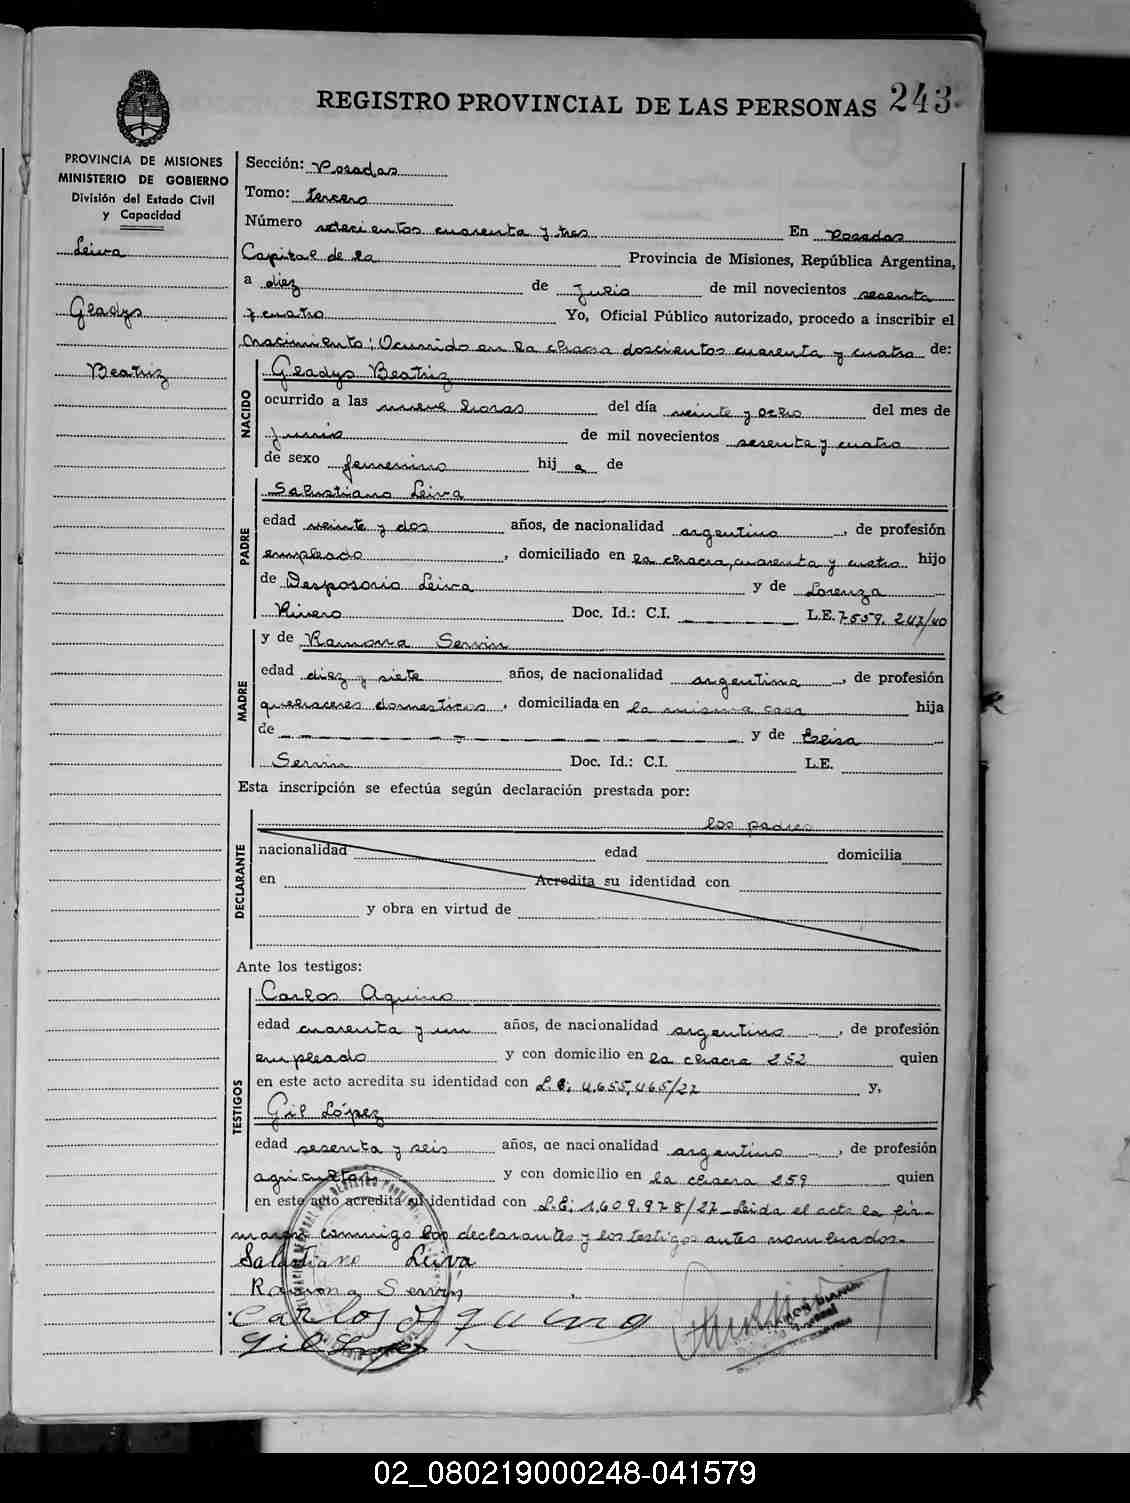 REGISTRO PROVINCIAL DE LAS PERSONAS 243
PROVINCIA DE MISIONES
MINISTERIO DE GOBIERNO
División del Estado Civil
y Capacidad
Leiva
Gladys
Beatriz
Sección: Posadas
Tomo: tercero
Número setecientos cuarenta y tres En Posadas
Capital de la Provincia de Misiones, República Argentina,
a diez de Julio de mil novecientos sesenta
y cuatro Yo, Oficial Público autorizado, procedo a inscribir el
nacimiento; Ocurrido en la chacra doscientos cuarenta y cuatro de:
NACIDO
Gladys Beatriz
ocurrido a las nueve horas del día veinte y ocho del mes de
Junio de mil novecientos sesenta y cuatro
de sexo femenino hij a de
PADRE
Salustiano Leiva
edad veinte y dos años, de nacionalidad argentino, de profesión
empleado, domiciliado en la chacra, cuarenta y cuatro hijo
de Desposorio Leiva y de Lorenza
Rivero Doc. Id.: C.I. L.E. 7.559.247/40
MADRE
y de Ramona Servin
edad diez y siete años, de nacionalidad argentina, de profesión
quehaceres domesticos, domiciliada en la misma casa hija
de y de Elisa
Servin Doc. Id.: C.I. L.E.
Esta inscripción se efectúa según declaración prestada por:
DECLARANTE
los padres
nacionalidad edad domicilia
en Acredita su identidad con
y obra en virtud de
Ante los testigos:
TESTIGOS
Carlos Aquino
edad cuarenta y un años, de nacionalidad argentino, de profesión
empleado y con domicilio en la chacra 252 quien
en este acto acredita su identidad con L.E: 4.655.465/27 y,
Gil López
edad sesenta y seis años, de nacionalidad argentino, de profesión
agricultor y con domicilio en la chacra 259 quien
en este acto acredita su identidad con L.E: 1.609.978/27 Leida el acta la fir-
maron conmigo los declarantes y los testigos antes nombrados.
Salustiano Leiva
Ramona Servin
Carlos Aquino
Gil Lopez
02_080219000248-041579